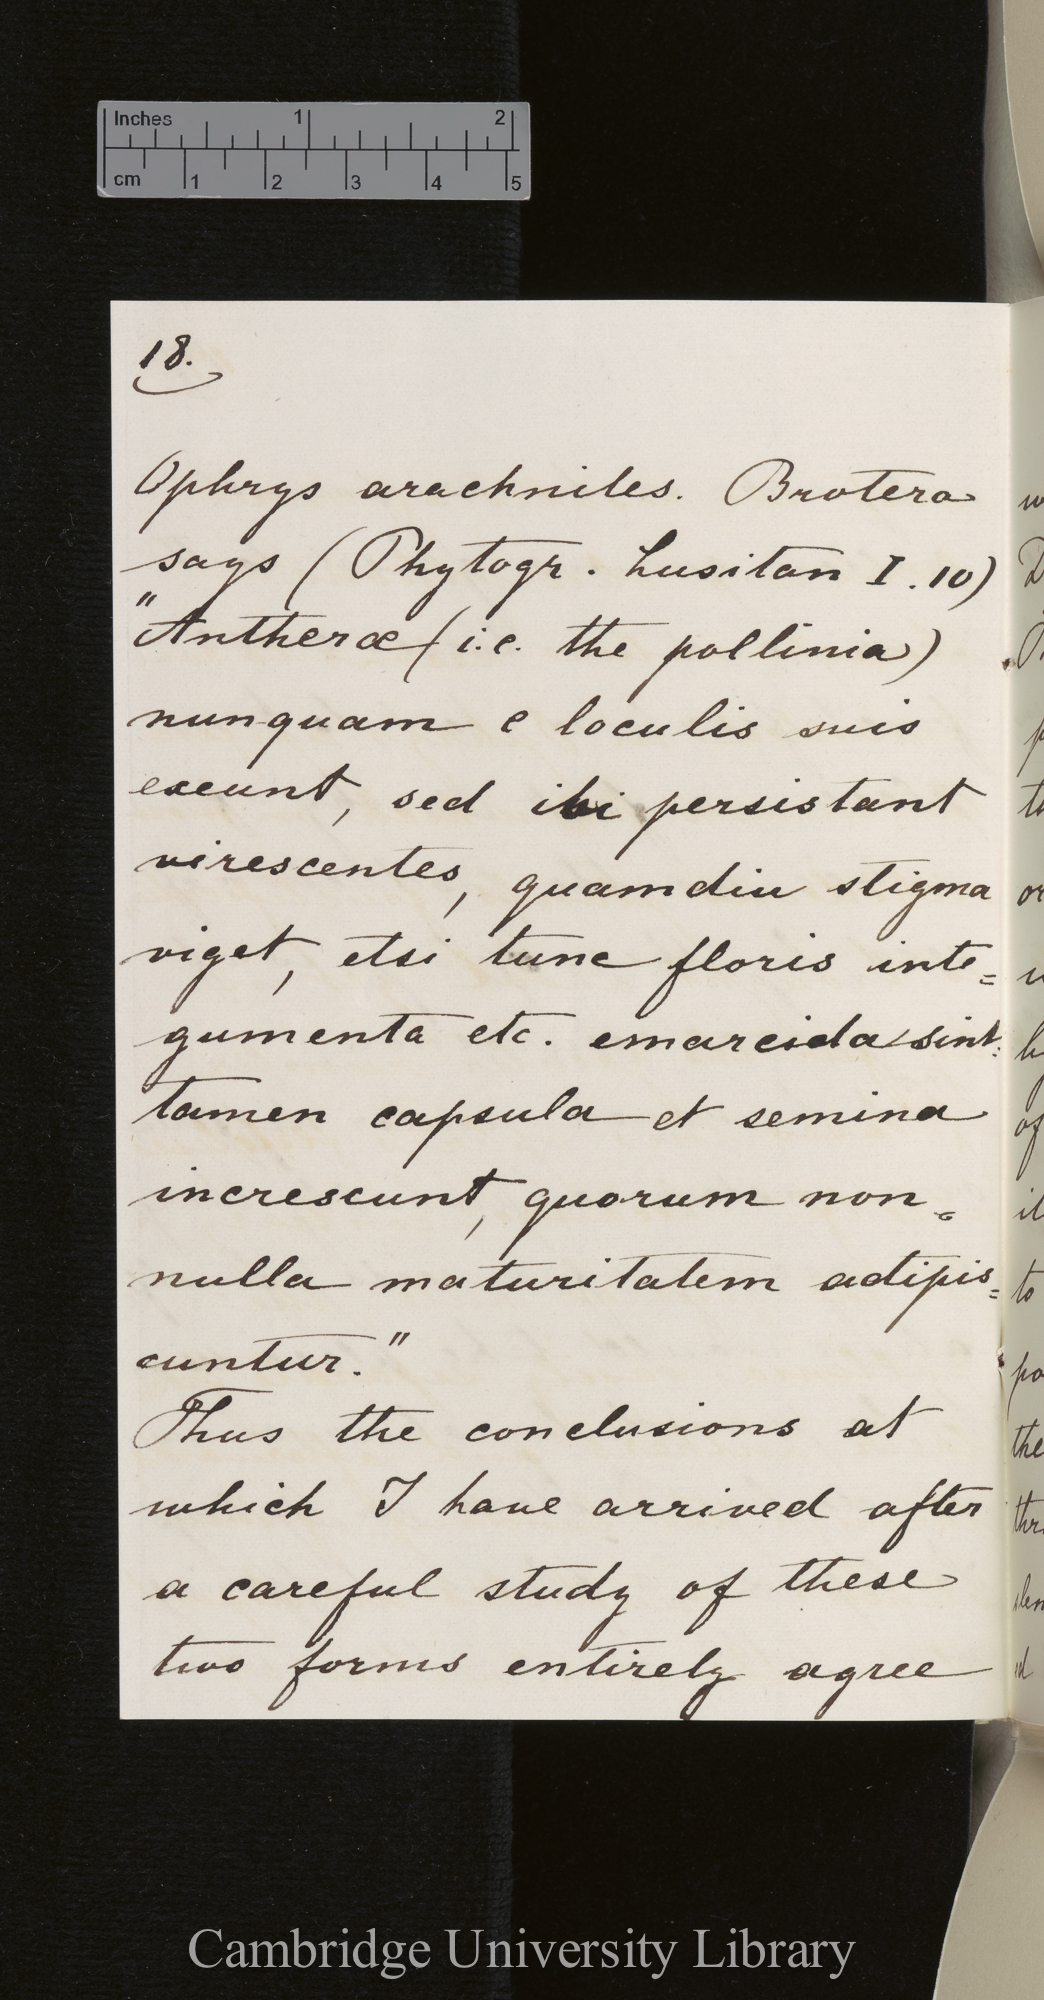 Inches 1 2
cm 1 2 3 4 5
18.
Ophrys arachnites. Brotero
says (Phytogr. Lusitan I. 10)
"Antheræ (i.e. the pollinia)
nunquam e loculis suis
exeunt, sed ibi persistant
virescentes, quamdiu stigma
viget, etsi tunc floris inte=
gumenta etc. emarcida sint:
tamen capsula et semina
increscunt, quorum non=
nulla maturitatem adipis=
cuntur."
Thus the conclusions at
which I have arrived after
a careful study of these
two forms entirely agree
Cambridge University Library